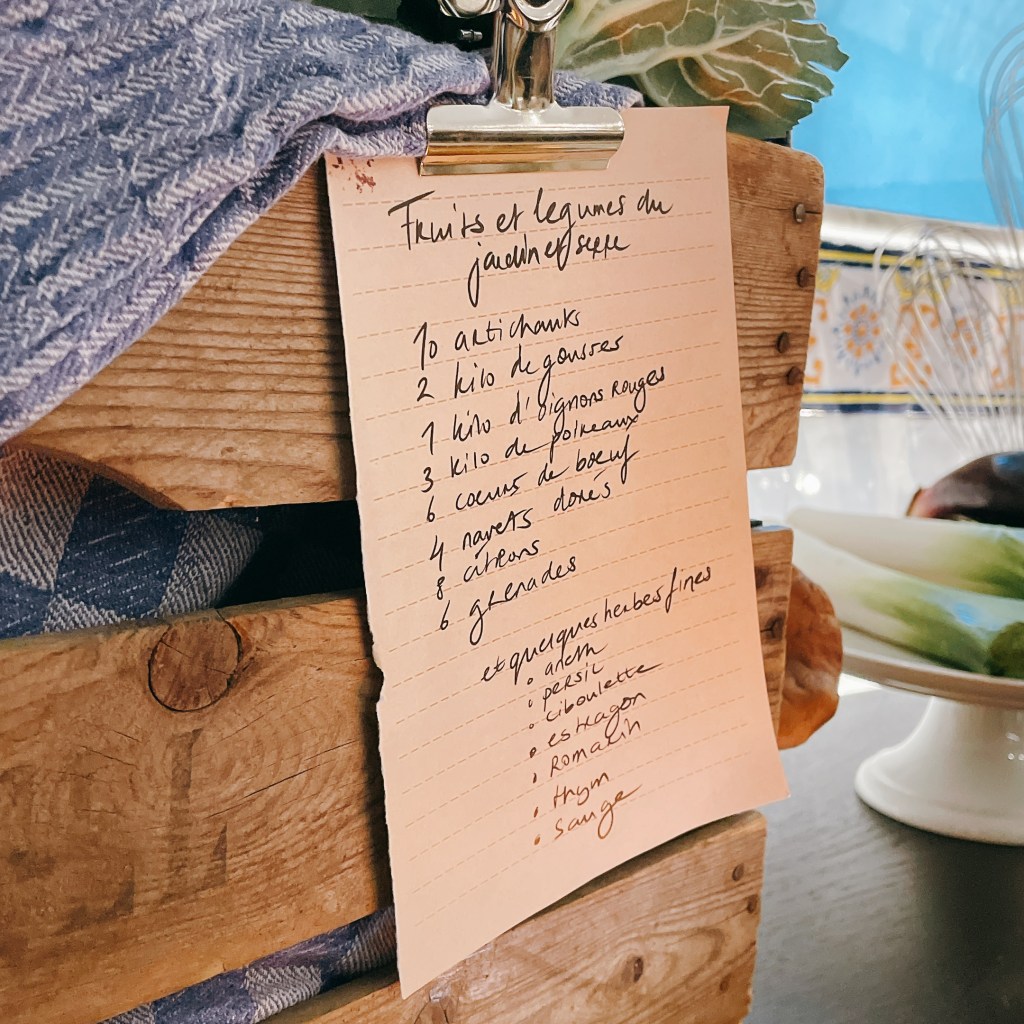 Fruits et legumes du
jardin et serre
10 artichauts
2 kilo de gousses
1 kilo d'oignons rouges
3 kilo de poireaux
6 coeurs de boeuf
4 navets dorés
8 citrons
6 grenades
et quelques herbes fines
• aneth
• persil
• ciboulette
• estragon
• Romarin
• thym
• sauge